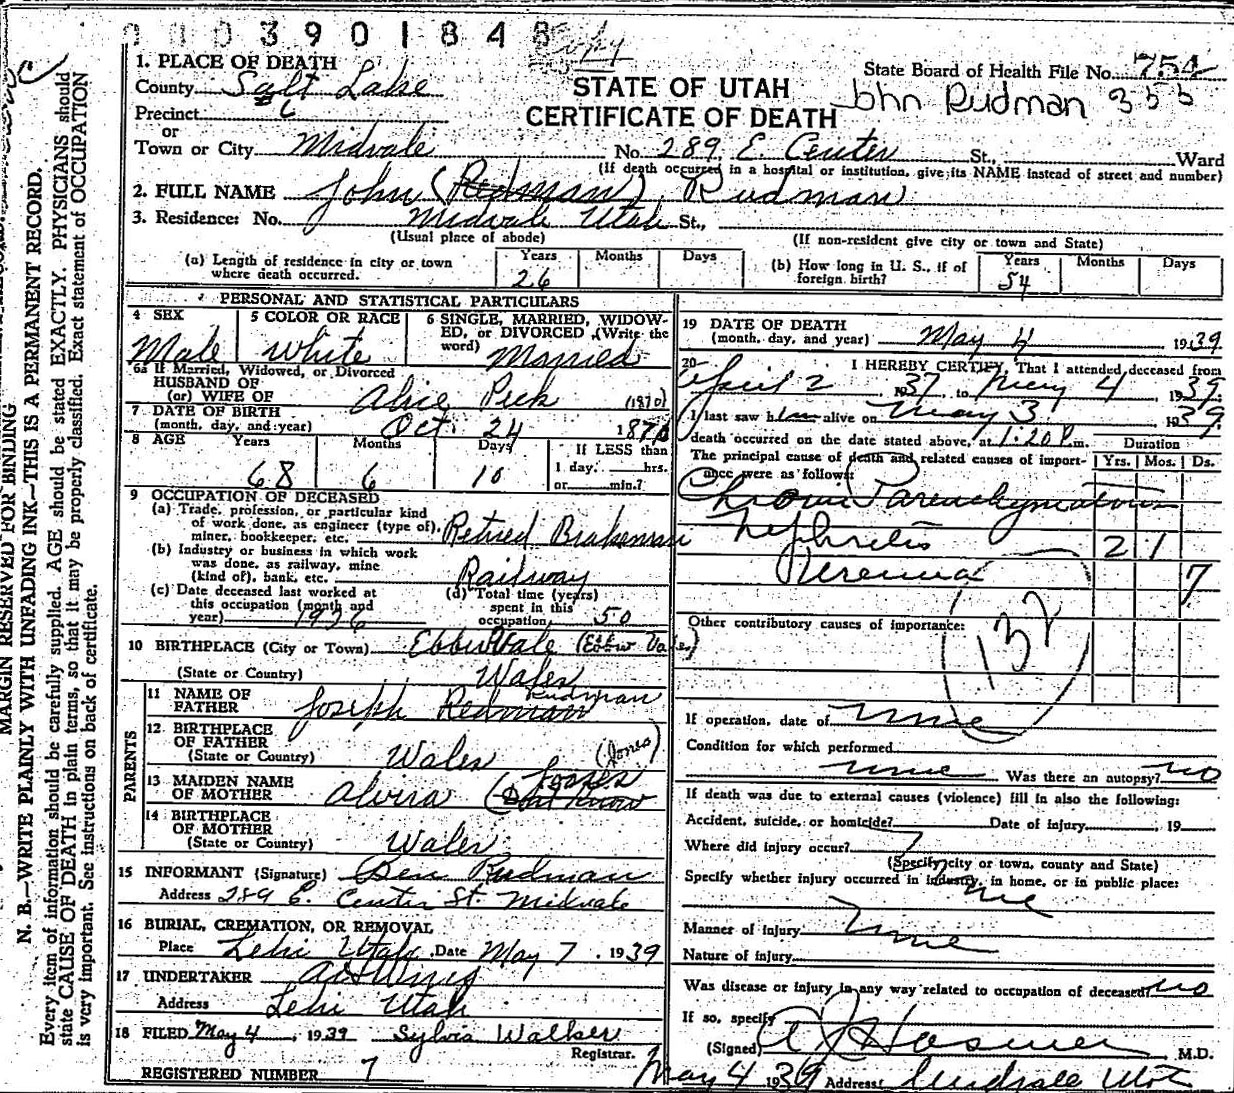 0003901848
Copy
1. PLACE OF DEATH
County Salt Lake
Precinct 6
or
Town or City Midvale No. 289 E. Center St., Ward
(If death occurred in a hospital or institution, give its NAME instead of street and number)
STATE OF UTAH
CERTIFICATE OF DEATH
State Board of Health File No. 754
John Rudman 355
2. FULL NAME John (Redman) Rudman
3. Residence: No. Midvale Utah St.,
(Usual place of abode) (If non-resident give city or town and State)
(a) Length of residence in city or town where death occurred. Years 26 Months Days
(b) How long in U. S., if of foreign birth? Years 54 Months Days
PERSONAL AND STATISTICAL PARTICULARS
4 SEX Male
5 COLOR OR RACE White
6 SINGLE, MARRIED, WIDOWED, or DIVORCED (Write the word) Married
6a If Married, Widowed, or Divorced
HUSBAND OF
(or) WIFE OF Alice Peck
(1870)
7 DATE OF BIRTH
(month, day, and year) Oct. 24 1870
8 AGE Years 68 Months 6 Days 10 If LESS than
1 day, hrs.
or min.?
9 OCCUPATION OF DECEASED
(a) Trade, profession, or particular kind of work done, as engineer (type of), miner, bookkeeper, etc. Retired Brakeman
(b) Industry or business in which work was done, as railway, mine (kind of), bank, etc. Railway
(c) Date deceased last worked at this occupation (month and year) 1936
(d) Total time (years) spent in this occupation 50
10 BIRTHPLACE (City or Town) Ebbuvale (Ebbw Vales)
(State or Country) Wales
PARENTS
11 NAME OF FATHER Joseph Redman Rudman
12 BIRTHPLACE OF FATHER
(State or Country) Wales
(Jones)
13 MAIDEN NAME OF MOTHER Alvira (Dont Know
14 BIRTHPLACE OF MOTHER
(State or Country) Wales
15 INFORMANT (Signature) Ben Rudman
Address 289 E. Center St. Midvale
16 BURIAL, CREMATION, OR REMOVAL
Place Lehi Utah Date May 7, 1939
17 UNDERTAKER
Address Lehi Utah
18 FILED May 4, 1939 Sylvia Walker
Registrar.
REGISTERED NUMBER 7
19 DATE OF DEATH
(month, day, and year) May 4 1939
20 I HEREBY CERTIFY, That I attended deceased from
April 2 1937, to May 4, 1939.
I last saw him alive on May 3 1939
death occurred on the date stated above, at 1:20 P.m.
Duration
The principal cause of death and related causes of importance were as follows: Yrs. Mos. Ds.
Chronic Parenchymatous
Nephritis 2 1
Uremia 7
Other contributory causes of importance:
132
If operation, date of none
Condition for which performed
none Was there an autopsy? no
If death was due to external causes (violence) fill in also the following:
Accident, suicide, or homicide? Date of injury, 19
Where did injury occur?
(Specify city or town, county and State)
Specify whether injury occurred in industry, in home, or in public place:
Manner of injury none
Nature of injury
Was disease or injury in any way related to occupation of deceased? no
If so, specify
(Signed) M.D.
May 4 1939 Address: Midvale Utah
MARGIN RESERVED FOR BINDING
N. B.—WRITE PLAINLY WITH UNFADING INK—THIS IS A PERMANENT RECORD.
Every item of information should be carefully supplied. AGE should be stated EXACTLY. PHYSICIANS should
state CAUSE OF DEATH in plain terms, so that it may be properly classified. Exact statement of OCCUPATION
is very important. See instructions on back of certificate.